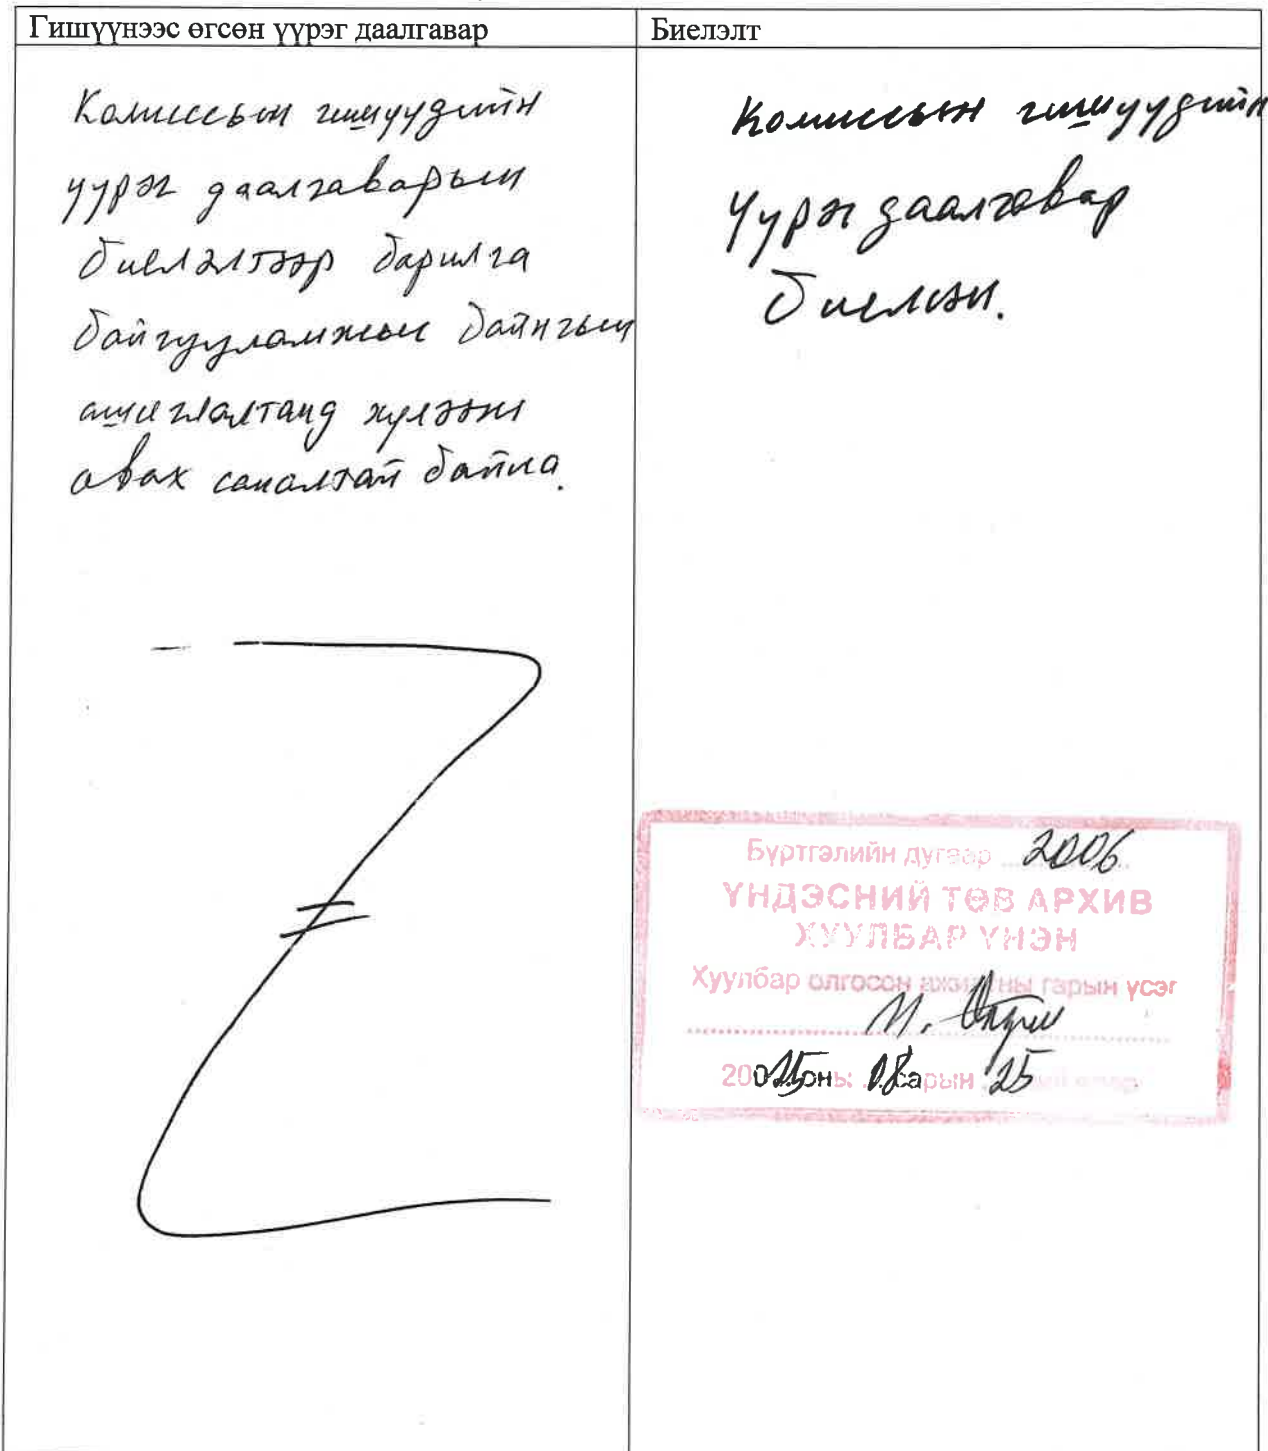 Гишүүнээс өгсөн үүрэг даалгавар
Биелэлт
Комиссын гишүүдийн
үүрэг даалгаварын
биелэлтээр барилга
байгууламжын байнгын
ашиглалтанд хүлээн
авах саналтай байна.
Комиссын гишүүдийн
Үүрэг даалгавар
биелсэн.
Бүртгэлийн дугаар 2006
ҮНДЭСНИЙ ТӨВ АРХИВ
ХУУЛБАР ҮНЭН
Хуулбар олгосон ажилтны гарын үсэг
2025 оны 08 сарын 25